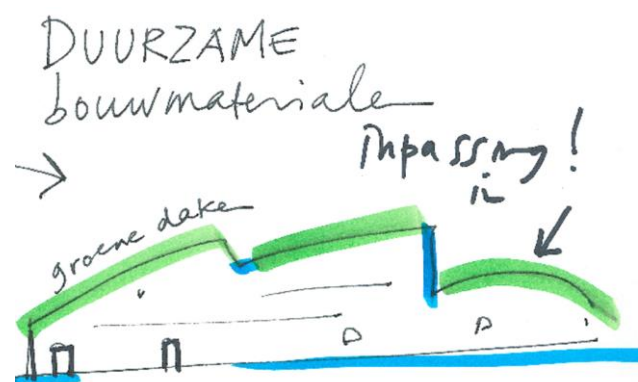 DUURZAME
bouwmaterialen
inpassing!
in
groene daken